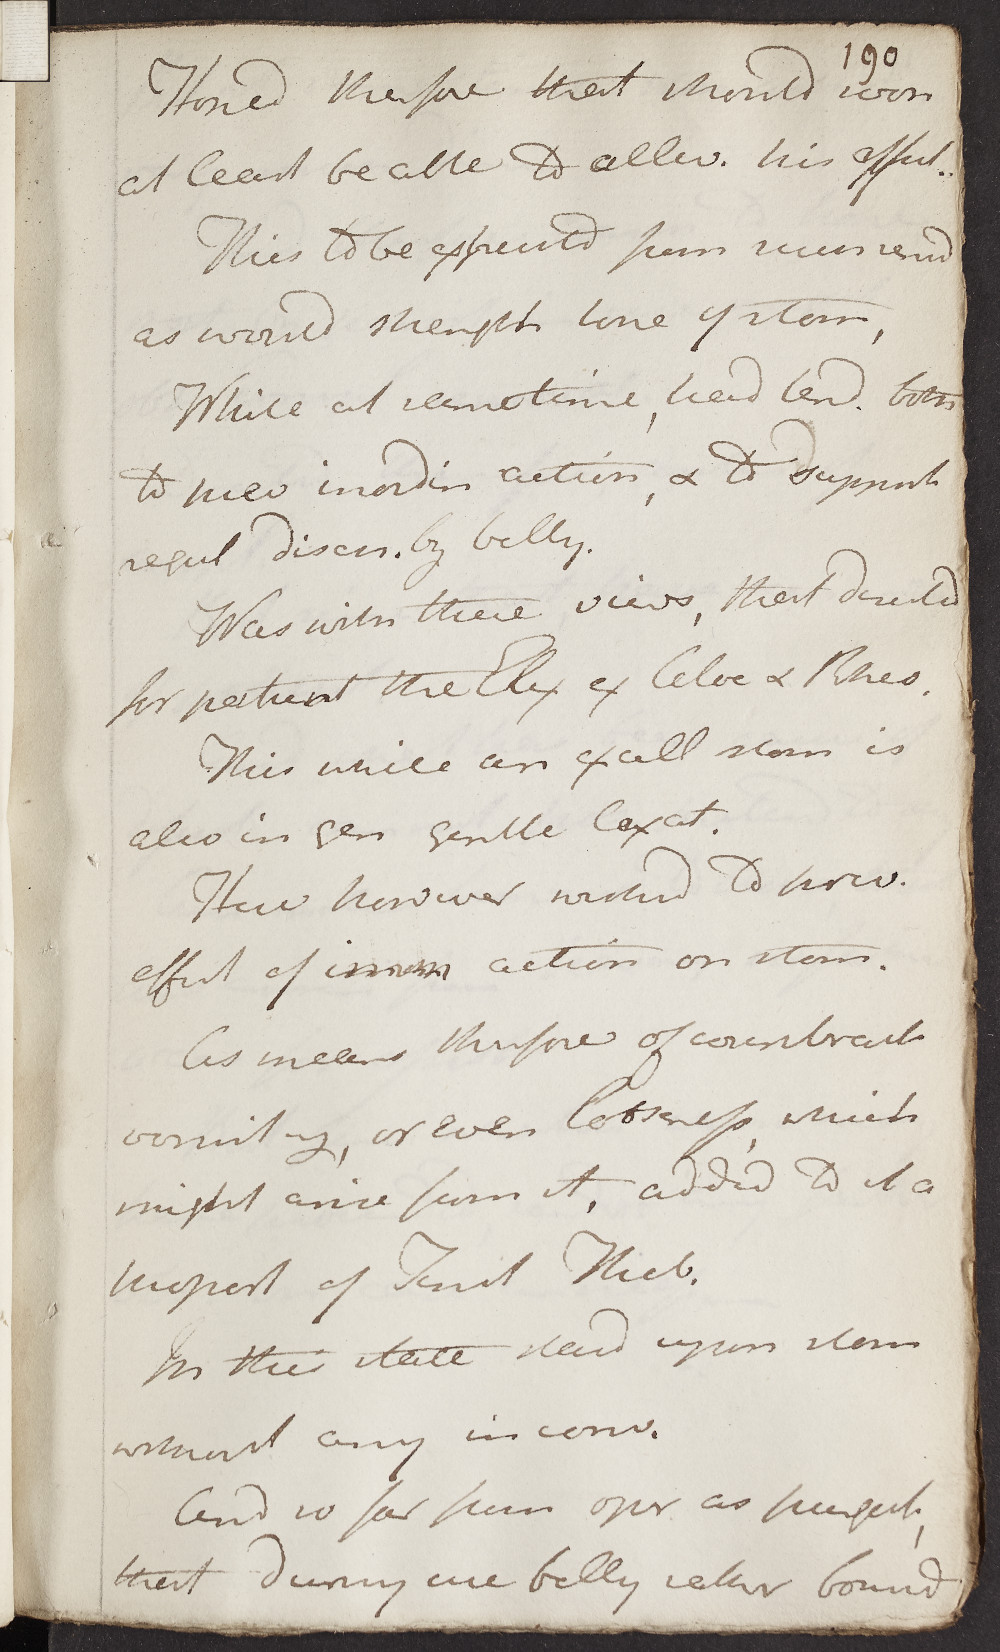 190
Hoped therefore that should soon
at least be able to allev. his affect..
This to be expected from such remed
as would strength tone of stom,
While at same time, had tend. both
to prev inordin action, & to support
regul discn. by belly.
Was with these views, that directed
for patient the Elix ex Aloe & Rheo.
This while an excell stom is
also in gen gentle laxat.
Here however wished to prev.
effect of action on stom.
As means therefore of counteract
vomiting, or even looseness, which
might arise from it, added to it a
proport of Tinct Theb.
In this state stead upon stom
without any inconv.
And so far from oper as purgat,
that during use belly rather bound